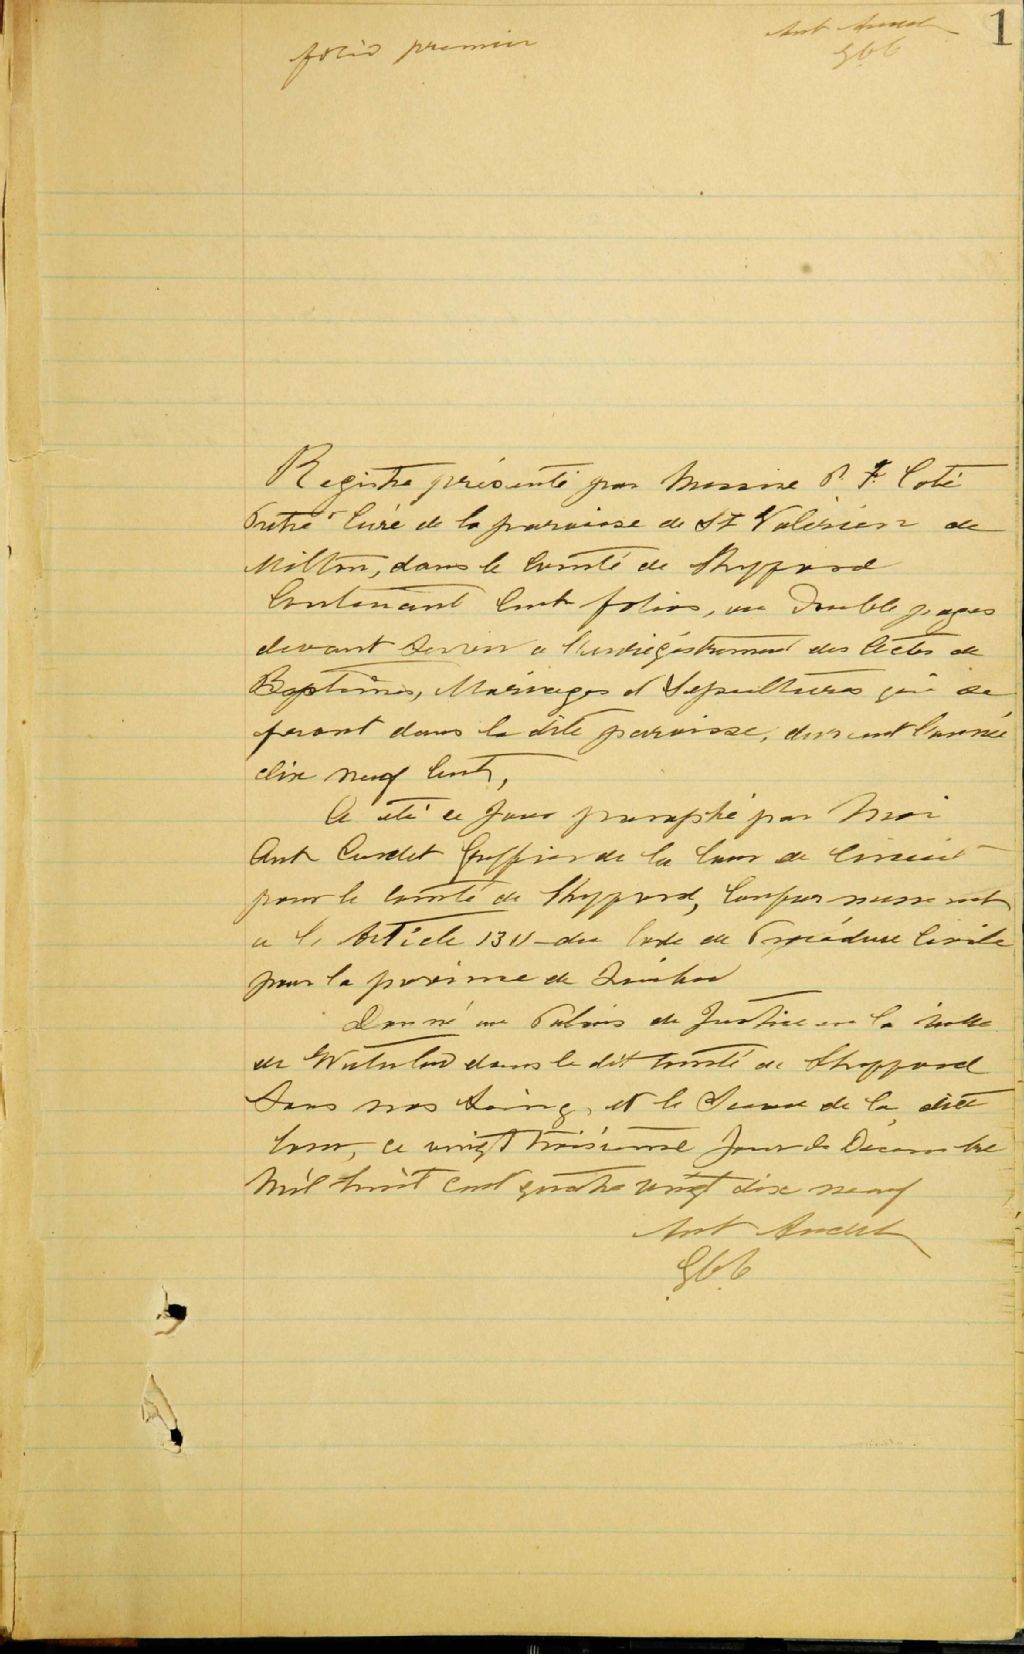 folio premier
Ant Audet
GCC
1
Registre présenté par Messire P. F. Coté
Prètre Curé de la paroisse de St Valérien de
Milton, dans le Comté de Shefford
Contenant Cent folios, ou Double pages
devant Servir a l'enrégistrement des Actes de
Baptèmes, Mariages et Sépultures qui se
feront dans la dite paroisse, durant l'année
dix neuf Cent,
A été ce Jour paraphé par Moi
Ant Audet Greffier de la Cour de Circuit
pour le Comté de Shefford, Conformement
a l' Article 1311 du Code de Procédure Civile
pour la province de Québec
Donné au Palais de Justice en la ville
de Waterloo dans le dit Comté de Shefford
Sous nos Seing, et le Sceau de la dite
Cour, ce vingt troisième Jour de Décembre
Mil huit cent quatre vingt dix neuf
Ant Audet
GCC